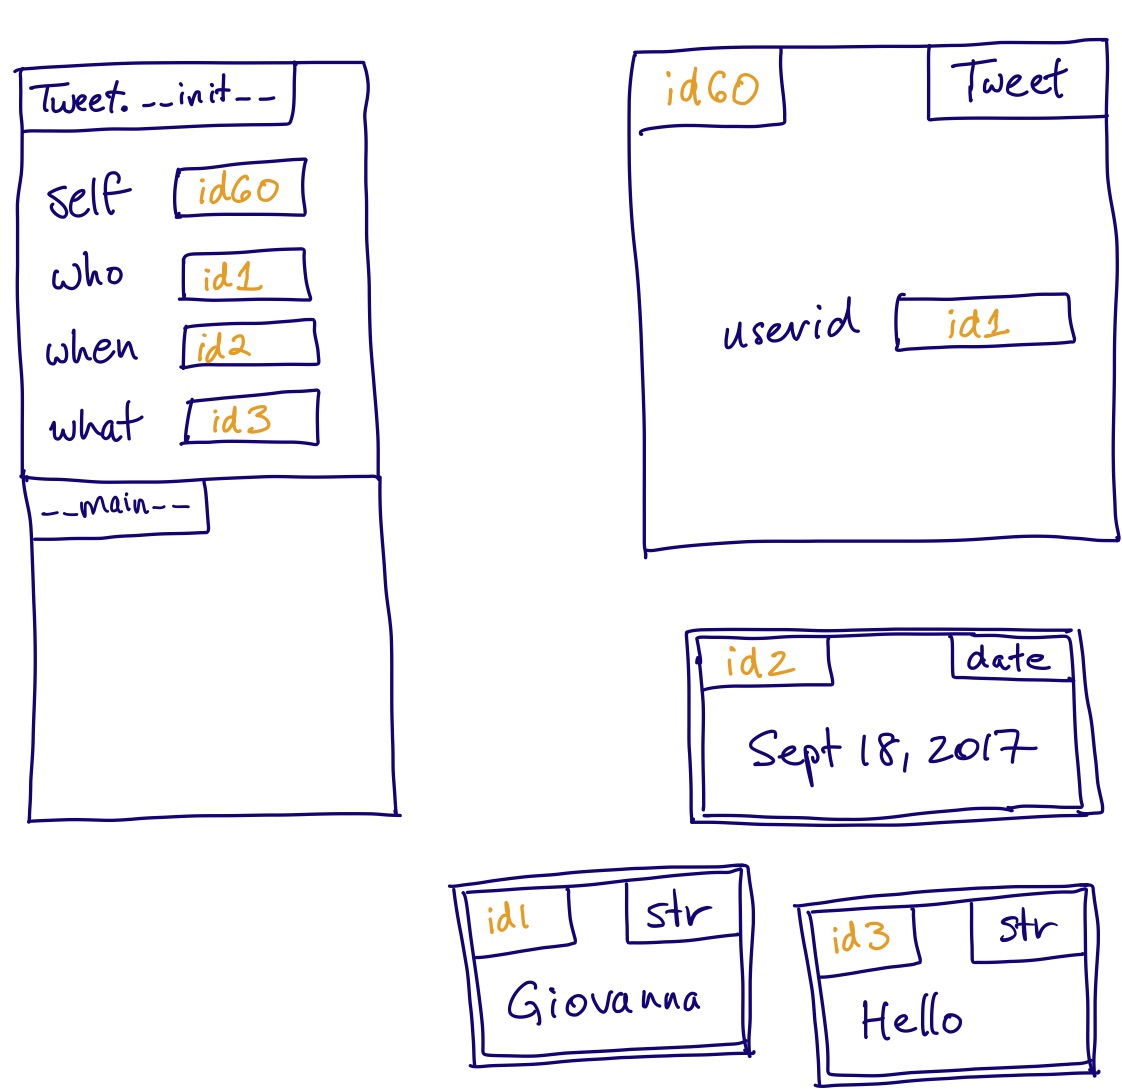 Tweet.__init__
self id60
who id1
when id2
what id3
__main__
id60 Tweet
userid id1
id2 date
Sept 18, 2017
id1 str
Giovanna
id3 str
Hello